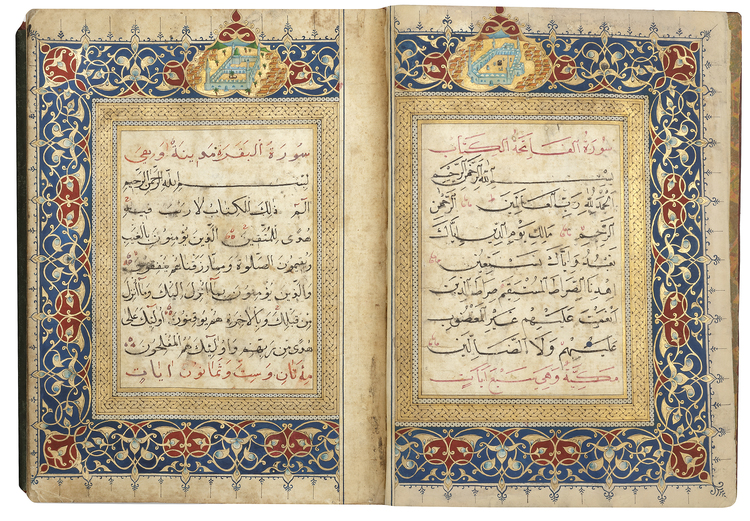 سورة الفاتحة الكتاب
بسم الله الرحمن الرحيم
الحمد لله رب العالمين الرحمن
الرحيم مالك يوم الدين اياك
نعبد واياك نستعين
اهدنا الصراط المستقيم صراط الذين
انعمت عليهم غير المغضوب
عليهم ولا الضالين
مكية وهي سبع ايات
سورة البقرة مدنية وهي
بسم الله الرحمن الرحيم
الم ذلك الكتاب لا ريب فيه
هدى للمتقين الذين يؤمنون بالغيب
ويقيمون الصلوة ومما رزقناهم ينفقون
والذين يؤمنون بما انزل اليك وما انزل
من قبلك وبالاخرة هم يوقنون اولئك على
هدى من ربهم واولئك هم المفلحون
مأتان وست وثمانون ايات